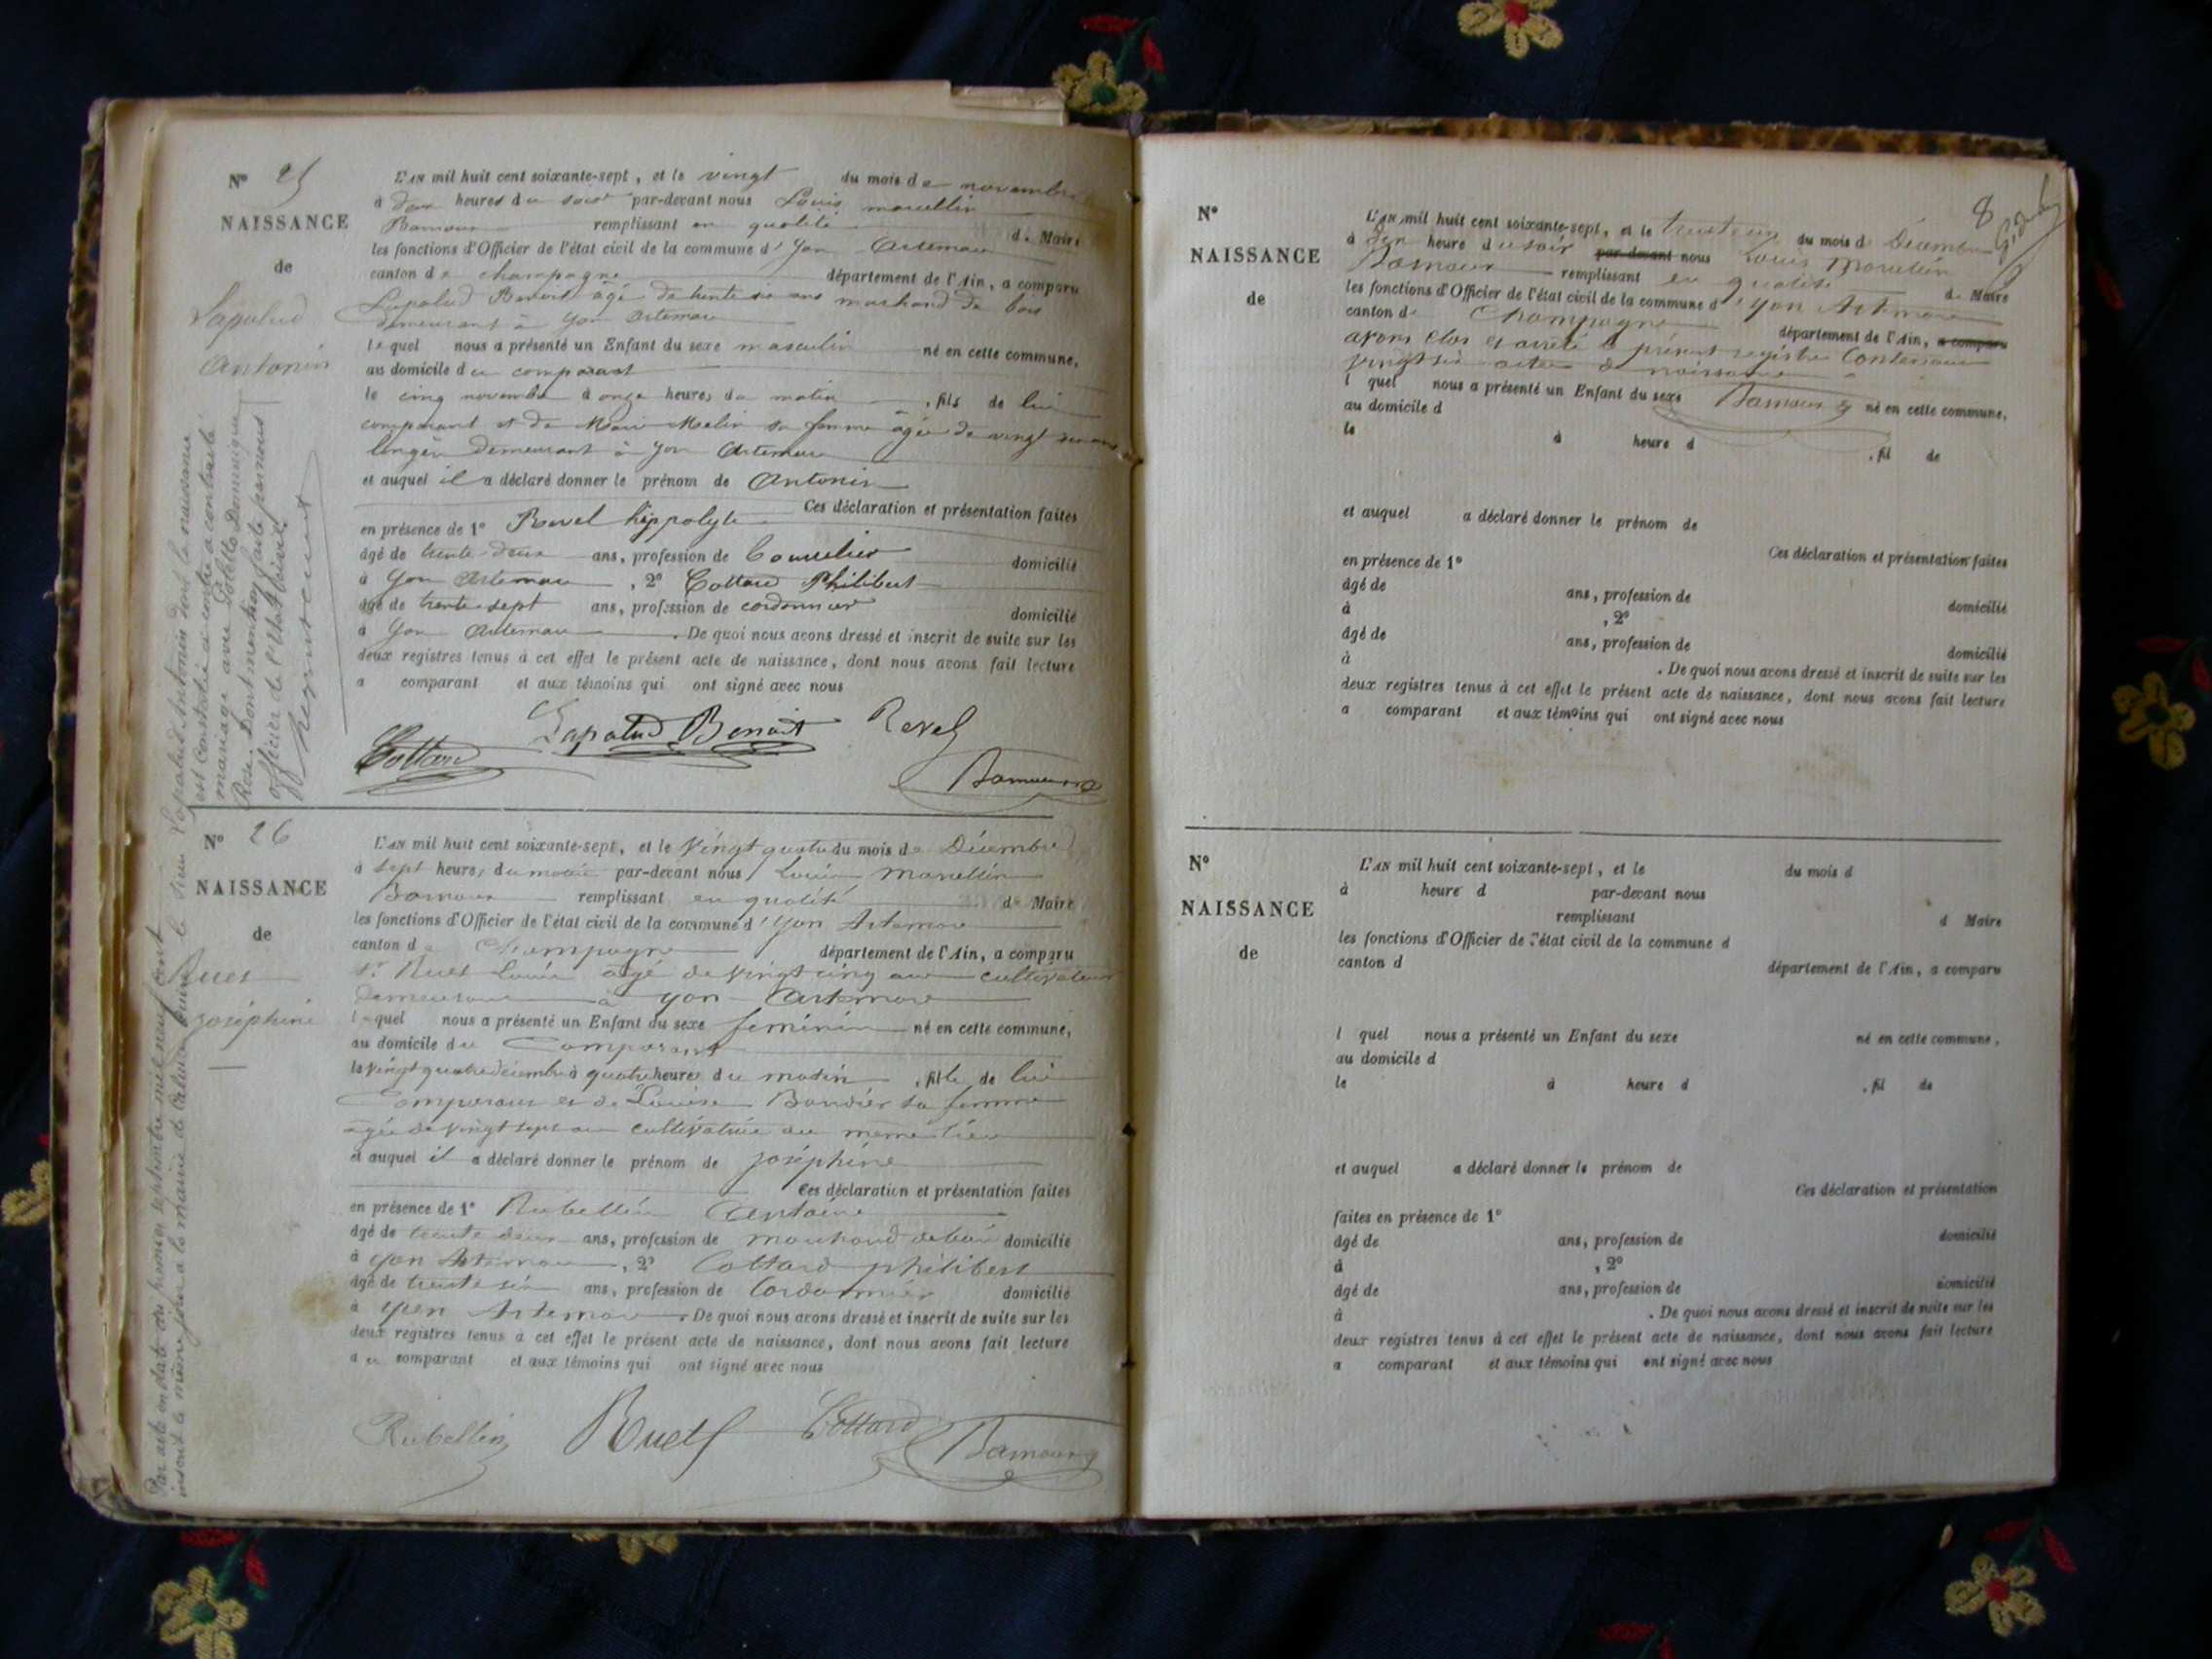 N° 25
NAISSANCE
de
Lapalud
Antonin
L'AN mil huit cent soixante-sept, et le vingt du mois de novembre
à deux heures du soir par-devant nous Louis marcellin
Bamour remplissant en qualité de Maire
les fonctions d'Officier de l'état civil de la commune d'yon Artemare
canton de champagne département de l'Ain, a comparu
Lapalud Benoit âgé de trente six ans marchand de bois
demeurant à yon artemare
lequel nous a présenté un Enfant du sexe masculin né en cette commune,
au domicile du comparant
le cinq novembre à onze heures du matin, fils de lui
comparant et de Marie Melin sa femme âgée de vingt ans
lingère demeurant à yon Artemare
et auquel il a déclaré donner le prénom de Antonin
Ces déclaration et présentation faites
en présence de 1° Revel hippolyte
âgé de trente-deux ans, profession de domicilié
à yon Artemare, 2° Cottard Philibert
âgé de trente-sept ans, profession de cordonnier domicilié
à yon Artemare. De quoi nous avons dressé et inscrit de suite sur les
deux registres tenus à cet effet le présent acte de naissance, dont nous avons fait lecture
a comparant et aux témoins qui ont signé avec nous
Lapalud Benoit Revel
Cottard Bamour
Par acte en date du premier septembre mil neuf cent
inscrit le même jour à la mairie de le sieur Lapalud Antonin dont la naissance
est constatée ci-contre a contracté
mariage avec Dominique
Rose. Dont mention faite par nous
officier de l'état civil
N° 26
NAISSANCE
de
Ruet
joséphine
L'AN mil huit cent soixante-sept, et le vingt quatre du mois de Décembre
à sept heures du matin par-devant nous Louis marcellin
Bamour remplissant en qualité de Maire
les fonctions d'Officier de l'état civil de la commune d'yon Artemare
canton de Champagne département de l'Ain, a comparu
sr Ruet Louis agé de vingt cinq ans cultivateur
demeurant à yon Artemare
lequel nous a présenté un Enfant du sexe feminin né en cette commune,
au domicile du Comparant
le vingt quatre décembre à quatre heures du matin, fille de lui
Comparant et de Louise Bandier sa femme
agée de vingt sept ans cultivatrice au même lieu
et auquel il a déclaré donner le prénom de joséphine
Ces déclaration et présentation faites
en présence de 1° Rubellin Antoine
âgé de trente deux ans, profession de marchand de bois domicilié
à yon Artemare, 2° Cottard philibert
âgé de trente six ans, profession de Cordonnier domicilié
à yon Artemare. De quoi nous avons dressé et inscrit de suite sur les
deux registres tenus à cet effet le présent acte de naissance, dont nous avons fait lecture
au comparant et aux témoins qui ont signé avec nous
Rubellin Ruet Cottard Bamour
8
N°
NAISSANCE
de
L'AN mil huit cent soixante-sept, et le trente un du mois de Décembre
à heure du soir par-devant nous Louis Marcellin
Bamour remplissant en qualité de Maire
les fonctions d'Officier de l'état civil de la commune d'yon Artemare
canton de Champagne département de l'Ain, a comparu
avons clos et arrêté le présent registre Contenant
vingt six actes de naissance
l quel nous a présenté un Enfant du sexe Bamour né en cette commune,
au domicile d
le à heure d , fil de
et auquel a déclaré donner le prénom de
Ces déclaration et présentation faites
en présence de 1°
âgé de ans, profession de domicilié
à , 2°
âgé de ans, profession de domicilié
à . De quoi nous avons dressé et inscrit de suite sur les
deux registres tenus à cet effet le présent acte de naissance, dont nous avons fait lecture
a comparant et aux témoins qui ont signé avec nous
N°
NAISSANCE
de
L'AN mil huit cent soixante-sept, et le du mois d
à heure d par-devant nous
remplissant d Maire
les fonctions d'Officier de l'état civil de la commune d
canton d département de l'Ain, a comparu
l quel nous a présenté un Enfant du sexe né en cette commune,
au domicile d
le à heure d , fil de
et auquel a déclaré donner le prénom de
Ces déclaration et présentation
faites en présence de 1°
âgé de ans, profession de domicilié
à , 2°
âgé de ans, profession de domicilié
à . De quoi nous avons dressé et inscrit de suite sur les
deux registres tenus à cet effet le présent acte de naissance, dont nous avons fait lecture
a comparant et aux témoins qui ont signé avec nous